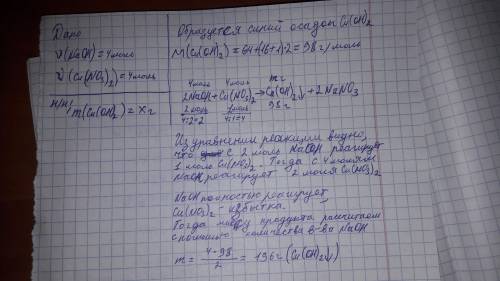 Дано
ν(NaOH)=4моль
ν(Cu(NO₃)₂)=4моль
н/н/m(Cu(OH)₂)=Xг
Образуется синий осадок Cu(OH)₂
M(Cu(OH)₂)=64+(16+1)·2=98г/моль
4моль 4моль mг
2NaOH+Cu(NO₃)₂→Cu(OH)₂↓+2NaNO₃
2моль 1моль 98г
4:2=2 4:1=4
Из уравнения реакции видно,
что с 2 моль NaOH реагирует
1 моль Cu(NO₃)₂. Тогда с 4 молями
NaOH реагирует 2 моля Cu(NO₃)₂
NaOH полностью реагирует,
Cu(NO₃)₂ - избытка.
Тогда массу продукта рассчитаем
с помощью количества в-ва NaOH
m=4·98/2=196г(Cu(OH)₂↓)